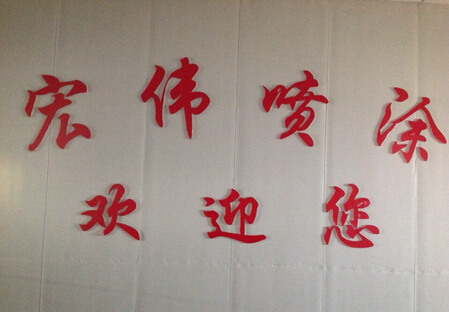 宏伟喷涂
欢迎您